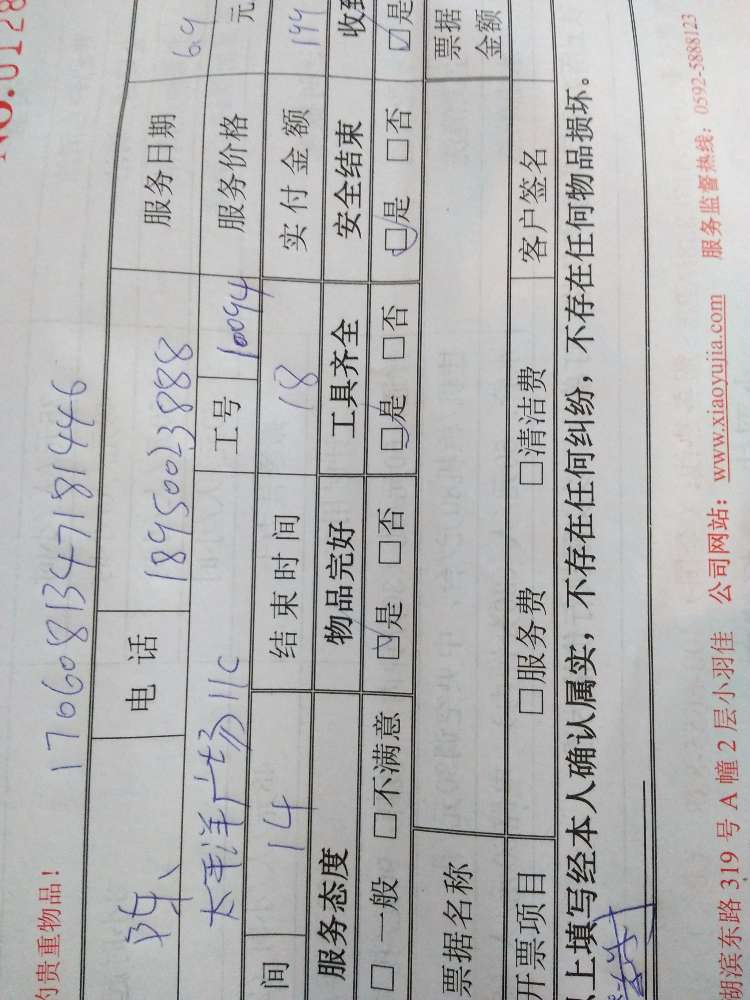 NO.0128
的贵重物品！
1706081347181446
陈 电话 18950023888 服务日期 6.9
太平洋广场11C 工号 10094 服务价格 元
间 14 结束时间 18 实付金额 144
服务态度 物品完好 工具齐全 安全结束 收到
□一般 □不满意 ☑是 □否 ☑是 □否 ☑是 □否 ☑是
票据名称 票据金额
开票项目 □服务费 □清洁费 客户签名
上填写经本人确认属实，不存在任何纠纷，不存在任何物品损坏。
胡滨东路 319 号 A 幢 2 层小羽佳 公司网站：www.xiaoyujia.com 服务监督热线：0592-5888123